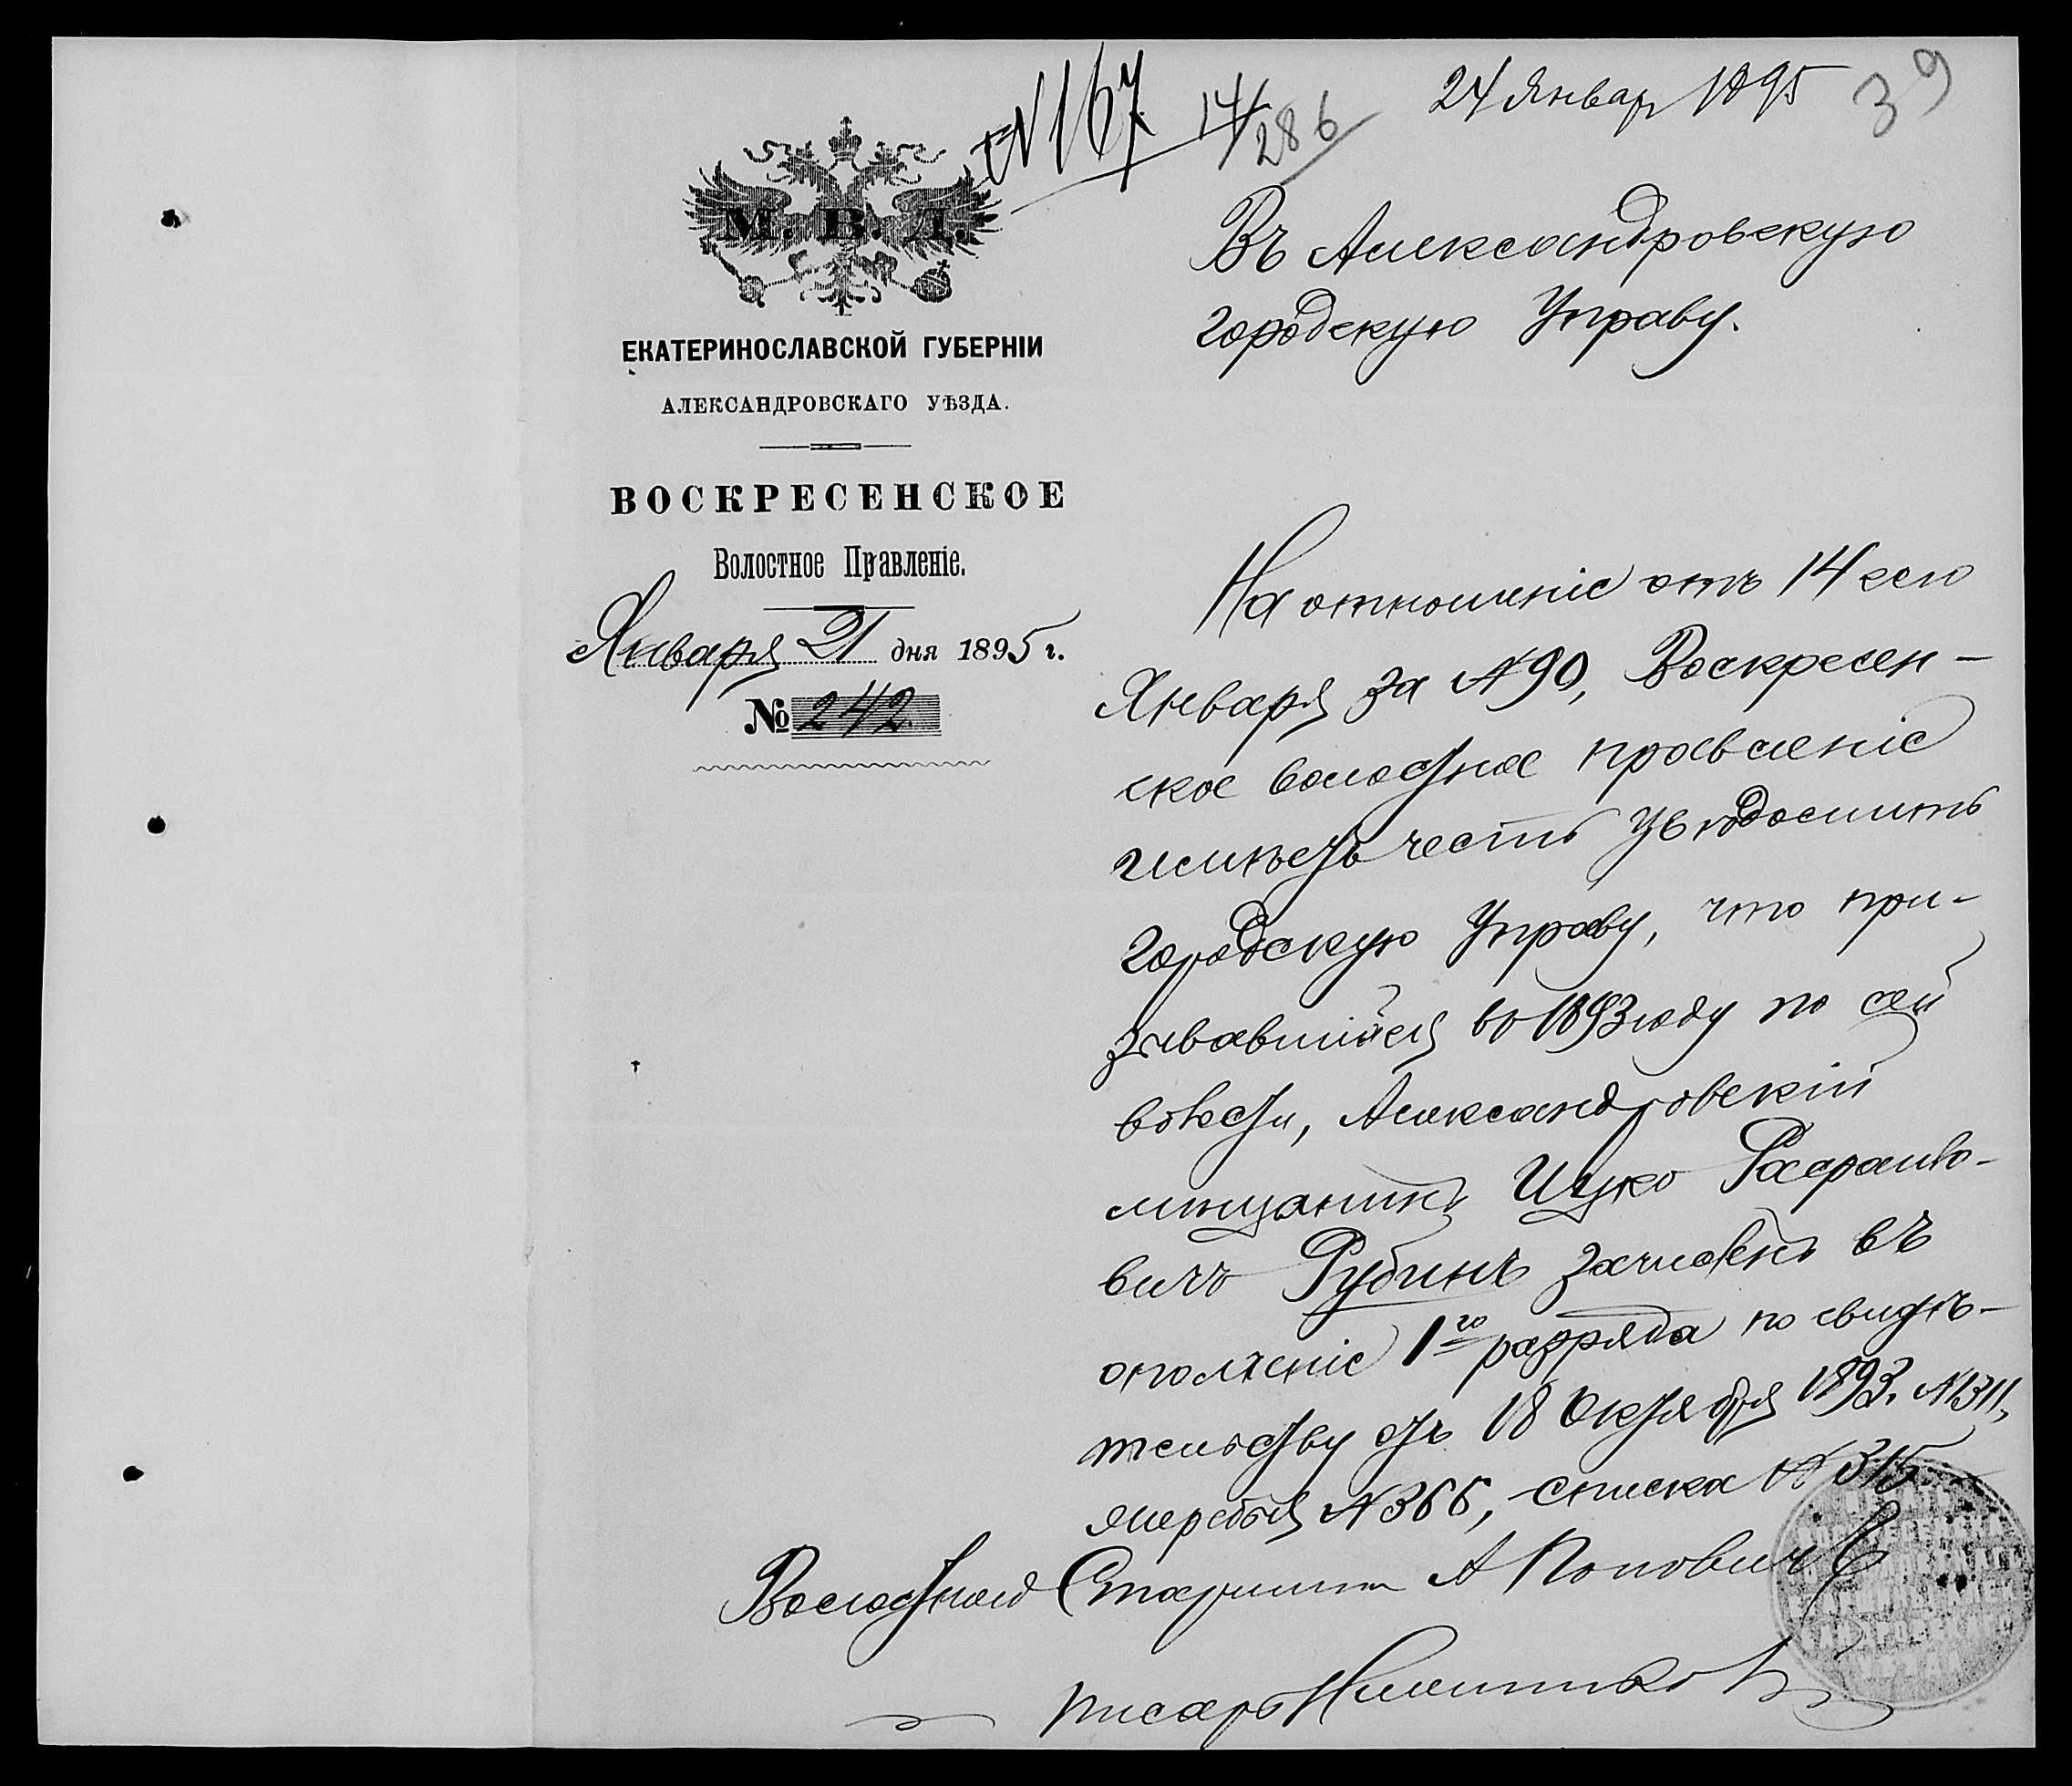 № 167
14/286
24 Январ 1895
39
М. В. Д.
ЕКАТЕРИНОСЛАВСКОЙ ГУБЕРНІИ
АЛЕКСАНДРОВСКАГО УѢЗДА.
ВОСКРЕСЕНСКОЕ
Волостное Правленіе.
Января 21 дня 1895 г.
№ 242
Въ Александровскую
городскую Управу.
На отношеніе отъ 14 сего
Января за № 90, Воскресен-
ское волостное правленіе
имѣетъ честь увѣдомить
городскую Управу, что при-
зывавшійся въ 1893 году по сей
волости, Александровскій
мѣщанинъ Ицко
вичъ Рубинъ зачисленъ въ
ополченіе 1го разряда по свидѣ-
тельству отъ 18 Октября 1893. № 1311,
жеребья № 366, списка № 315
Волостной Старшина А Попович
писарь